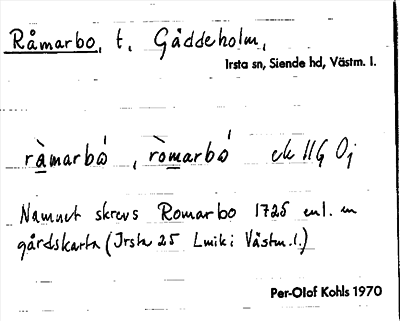 Råmarbo, t. Gäddeholm,
Irsta sn, Siende hd, Västm. l.
ràmarbǻ, ròmarbǻ ek IIG Oj
Namnet skrevs Romarbo 1725 enl. en
gårdskarta (Irsta 25 Lmik: Västm. l.)
Per-Olof Kohls 1970